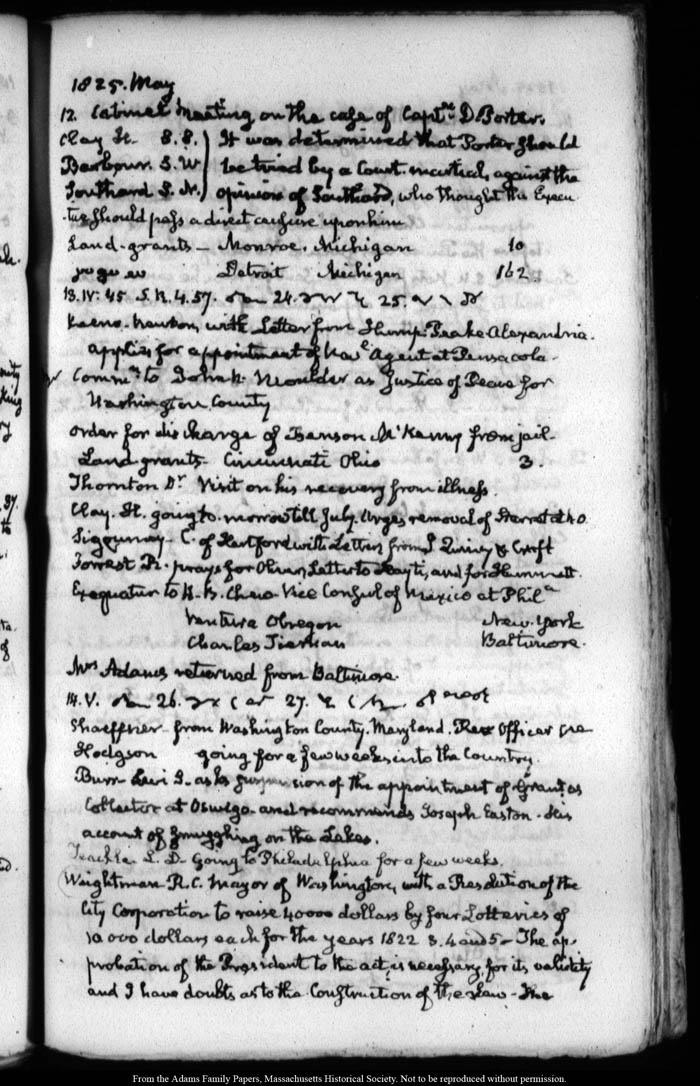 1825. May
12. Cabinet Meeting on the case of Captn. D Porter.
Clay H. S.S.) It was determined that Porter should
Barbour. S.W be tried by a Court-martial, against the
Southard S. N.) opinion of Southard, who thought the Execu
-tive should pass a direct censure upon him
Land-grants – Monroe. Michigan 10
Detroit Michigan 162.
13. IV: 45. S. R. 4.57. 24. 25.
Newton, with Letter from Thomp: Peake Alexandria.
applies for appointment of Navl. Agent at Pensacola.
Commn. to John N. Moulder as Justice of Peace for
Washington County
Order for discharge of Benson McKenny from jail.
Land grants – Cincinnati Ohio 3.
Thornton Dr. Visit on his recovery from illness.
Clay. H. going to-morrow till July. Urges removal of Sterret at N.O.
Sigourney – C. of Hartford with Letters from J Quincy &
Forrest R. prays for Letter to Hayti, and for
Exequatur to Vice Consul of Mexico at Phila.
Ventura Obregon New-York
Charles Tiernan Baltimore.
Mrs Adams returned from Baltimore.
14. V. 26. 27.
Shaeffner – from Washington County. Maryland. Rev Officer
Hodgson going for a few weeks into the Country.
Burr Levi I. asks suspension of the appointment of Grant as
Collector at Oswego and recommends Joseph Easton. His
account of smuggling on the Lakes.
Teackle. L. D. Going to Philadelphia for a few weeks.
Weightman R. C. Mayor of Washington, with a Resolution of the
City Corporation to raise 40000 dollars by four Lotteries of
10 000 dollars each for the years 1822 3. 4 and 5 – The ap-
probation of the President to the act, is necessary for its validity
and I have doubts as to the Construction of the Law – The
From the Adams Family Papers, Massachusetts Historical Society. Not to be reproduced without permission.